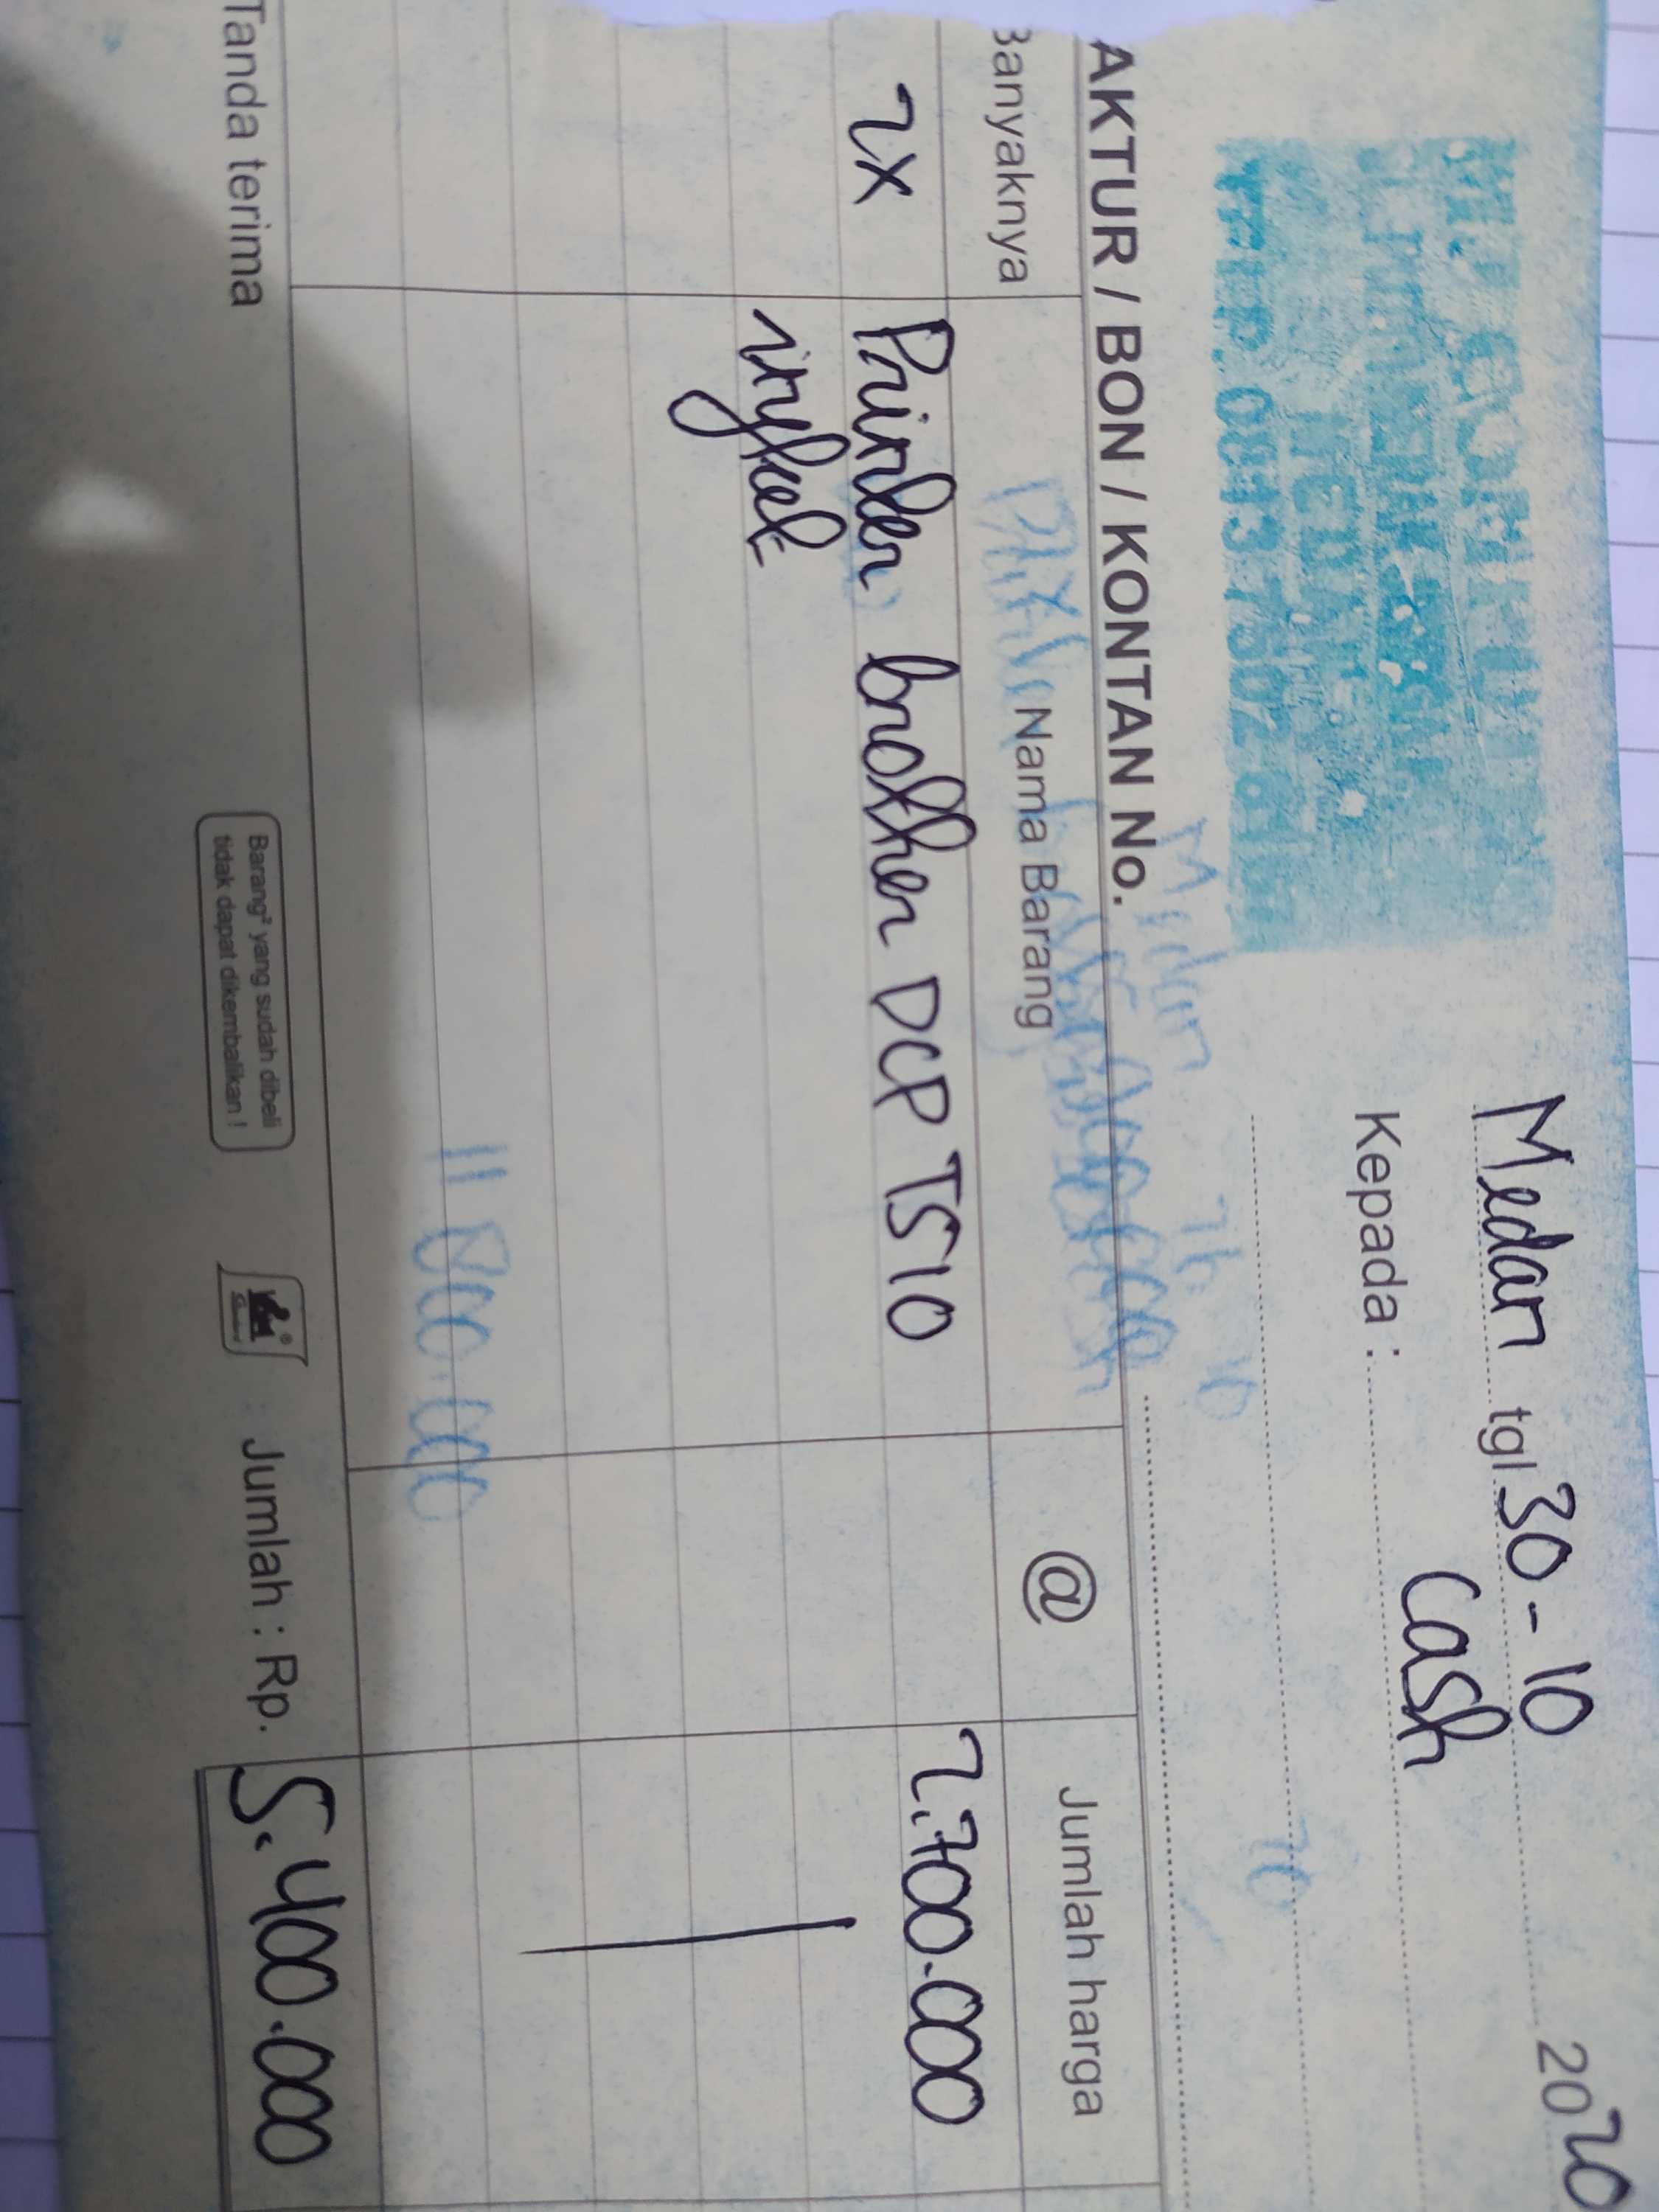 Medan tgl 30-10 2020
Kepada : Cash
TELP. 0813
AKTUR / BON / KONTAN No.
Banyaknya Nama Barang @ Jumlah harga
2x Printer brother DCP T510 2.700.000
inkjet
11 800.000
Tanda terima
Barang² yang sudah dibeli
tidak dapat dikembalikan !
Jumlah : Rp. 5.400.000